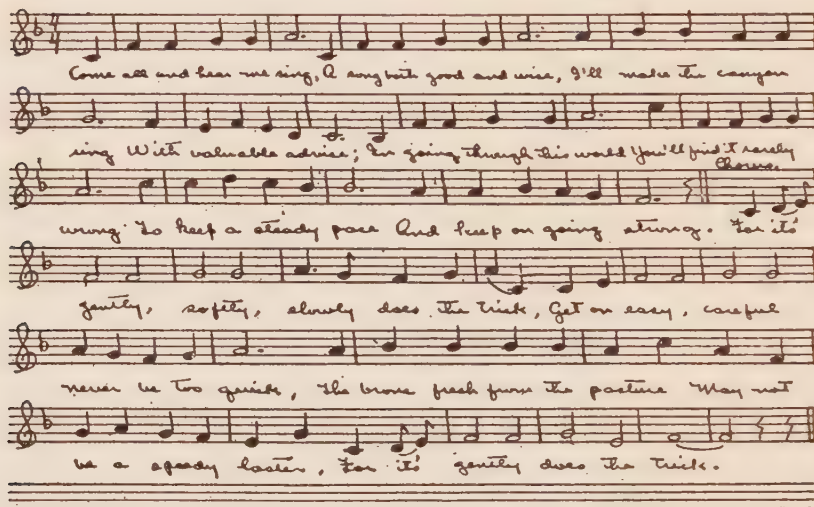 Come all and hear me sing, A song both good and wise, I'll make the canyon
ring With valuable advise; In going through this world You'll find it rarely
Chorus.
wrong To keep a steady pace And keep on going strong. For it's
gently, softly, slowly does the trick, Get on easy, careful
never be too quick, The bronc fresh from the pasture May not
be a speedy laster, For it's gently does the trick.